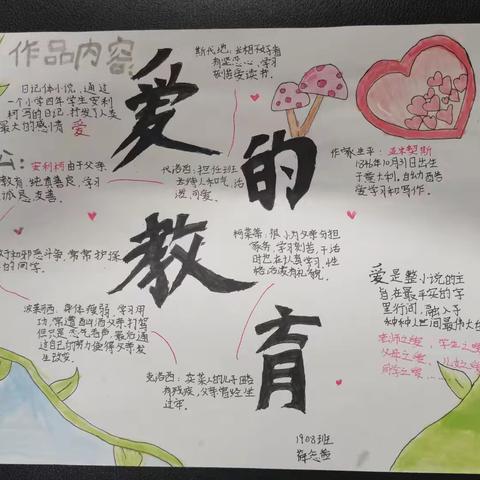 作品内容
日记体小说，通过
一个小学四年学生安利
柯写的日记，抒发了人类
最大的感情 爱
公：安利柯由于父亲
教育，纯真善良，学习
派恩、友善。
好和邪恶斗争，常常护
的同学。
斯代地：
有坚忍心，学习
故喜爱读书。
代洛西：担任班
活
泼、可爱。
柯莱蒂：很小为父母分担
家务，学习刻苦，干活
时也在认真学习，性
格活泼有礼貌。
波莱可西：身体瘦弱，学习用
功，常遭酗酒父亲打骂
但只是忍气吞声，最后通
过自己的努力使得父亲发
生改变。
克洛西：卖菜人的儿子，
有残疾，父亲曾经坐
过牢。
爱的教育
作家生平：亚米契斯
1846年10月31日出生
于意大利，自幼酷
爱学习和写作。
爱是整小说的主
旨，在最平实的字
里行间，融入了
种种人世间最伟大的
老师之爱、学生之爱
父母之爱、儿女之爱
同学之爱……
1908班